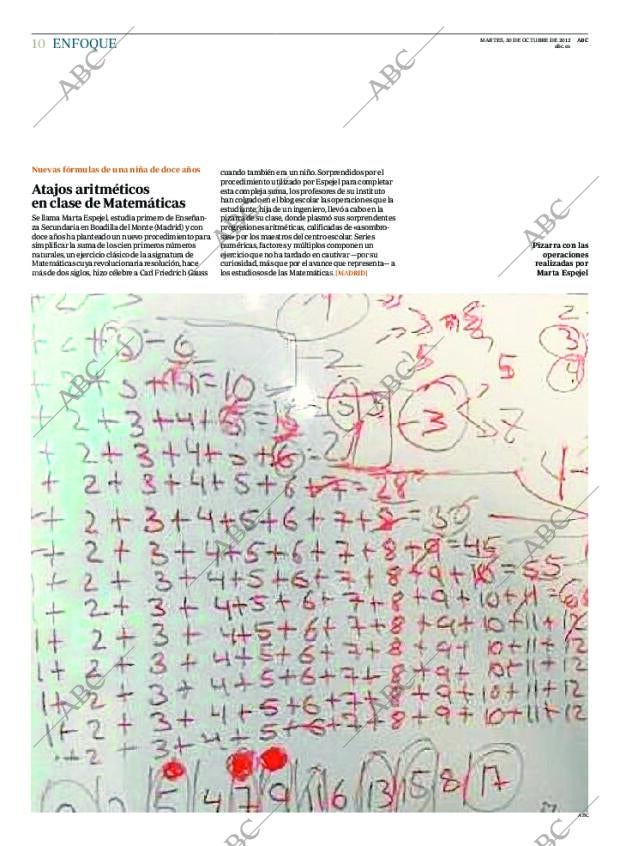 10 ENFOQUE
MARTES, 30 DE OCTUBRE DE 2012 ABC
abc.es
Nuevas fórmulas de una niña de doce años
Atajos aritméticos
en clase de Matemáticas
Se llama Marta Espejel, estudia primero de Enseñan-
za Secundaria en Boadilla del Monte (Madrid) y con
doce años ha planteado un nuevo procedimiento para
simplificar la suma de los cien primeros números
naturales, un ejercicio clásico de la asignatura de
Matemáticas cuya revolucionaria resolución, hace
más de dos siglos, hizo célebre a Carl Friedrich Gauss
cuando también era un niño. Sorprendidos por el
procedimiento utilizado por Espejel para completar
esta compleja suma, los profesores de su instituto
han colgado en el blog escolar las operaciones que la
estudiante, hija de un ingeniero, llevó a cabo en la
pizarra de su clase, donde plasmó sus sorprendentes
progresiones aritméticas, calificadas de «asombro-
sas» por los maestros del centro escolar. Series
numéricas, factores y múltiplos componen un
ejercicio que no ha tardado en cautivar —por su
curiosidad, más que por el avance que representa— a
los estudiosos de las Matemáticas. [MADRID]
Pizarra con las
operaciones
realizadas por
Marta Espejel
+ 2 + 3 + 4 = 10
+ 2 + 3 + 4 + 5 = 15
+ 2 + 3 + 4 + 5 + 6 = 2
+ 2 + 3 + 4 + 5 + 6 + 7 = 28
+ 2 + 3 + 4 + 5 + 6 + 7 + 8 = 36
+ 2 + 3 + 4 + 5 + 6 + 7 + 8 + 9 = 45
+ 2 + 3 + 4 + 5 + 6 + 7 + 8 + 9 + 10 = 55
+ 2 + 3 + 4 + 5 + 6 + 7 + 8 + 9 + 10 + 11 = 66
1 + 2 + 3 + 4 + 5 + 6 + 7 + 8 + 9 + 10 + 11 + 12
1 + 2 + 3 + 4 + 5 + 6 + 7 + 8 + 9 + 10 + 11 + 12
1 + 2 + 3 + 4 + 5 + 6 + 7 + 8 + 9 + 10 + 11 + 12
1 + 2 + 3 + 4 + 5 + 6 + 7 + 8 + 9 + 10 + 11 + 12
+ 2 + 3 + 4
5 4 7 9 1 6 3 5 8 17
ABC